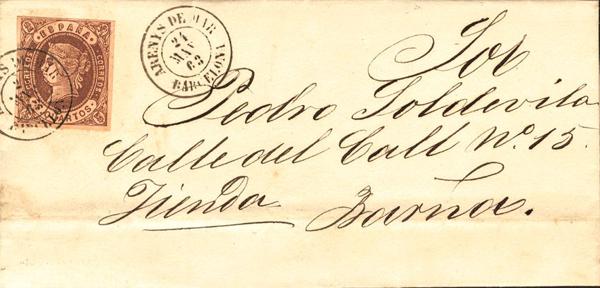 ESPAÑA
CORREOS
CUARTOS
ARENYS DE MAR
24
MAY
63
BARCELONA
Sor
Pedro Soldevila
Calle del Call Nº. 15.
Tienda Barña.